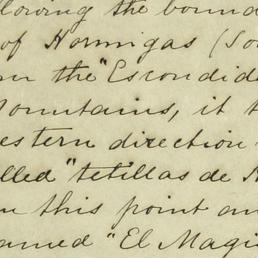 llowing the bound
of Hormigas (So
the "Escondid
ountains, it t
estern direction
lled "tetillas de
this point an
amed "El Magi